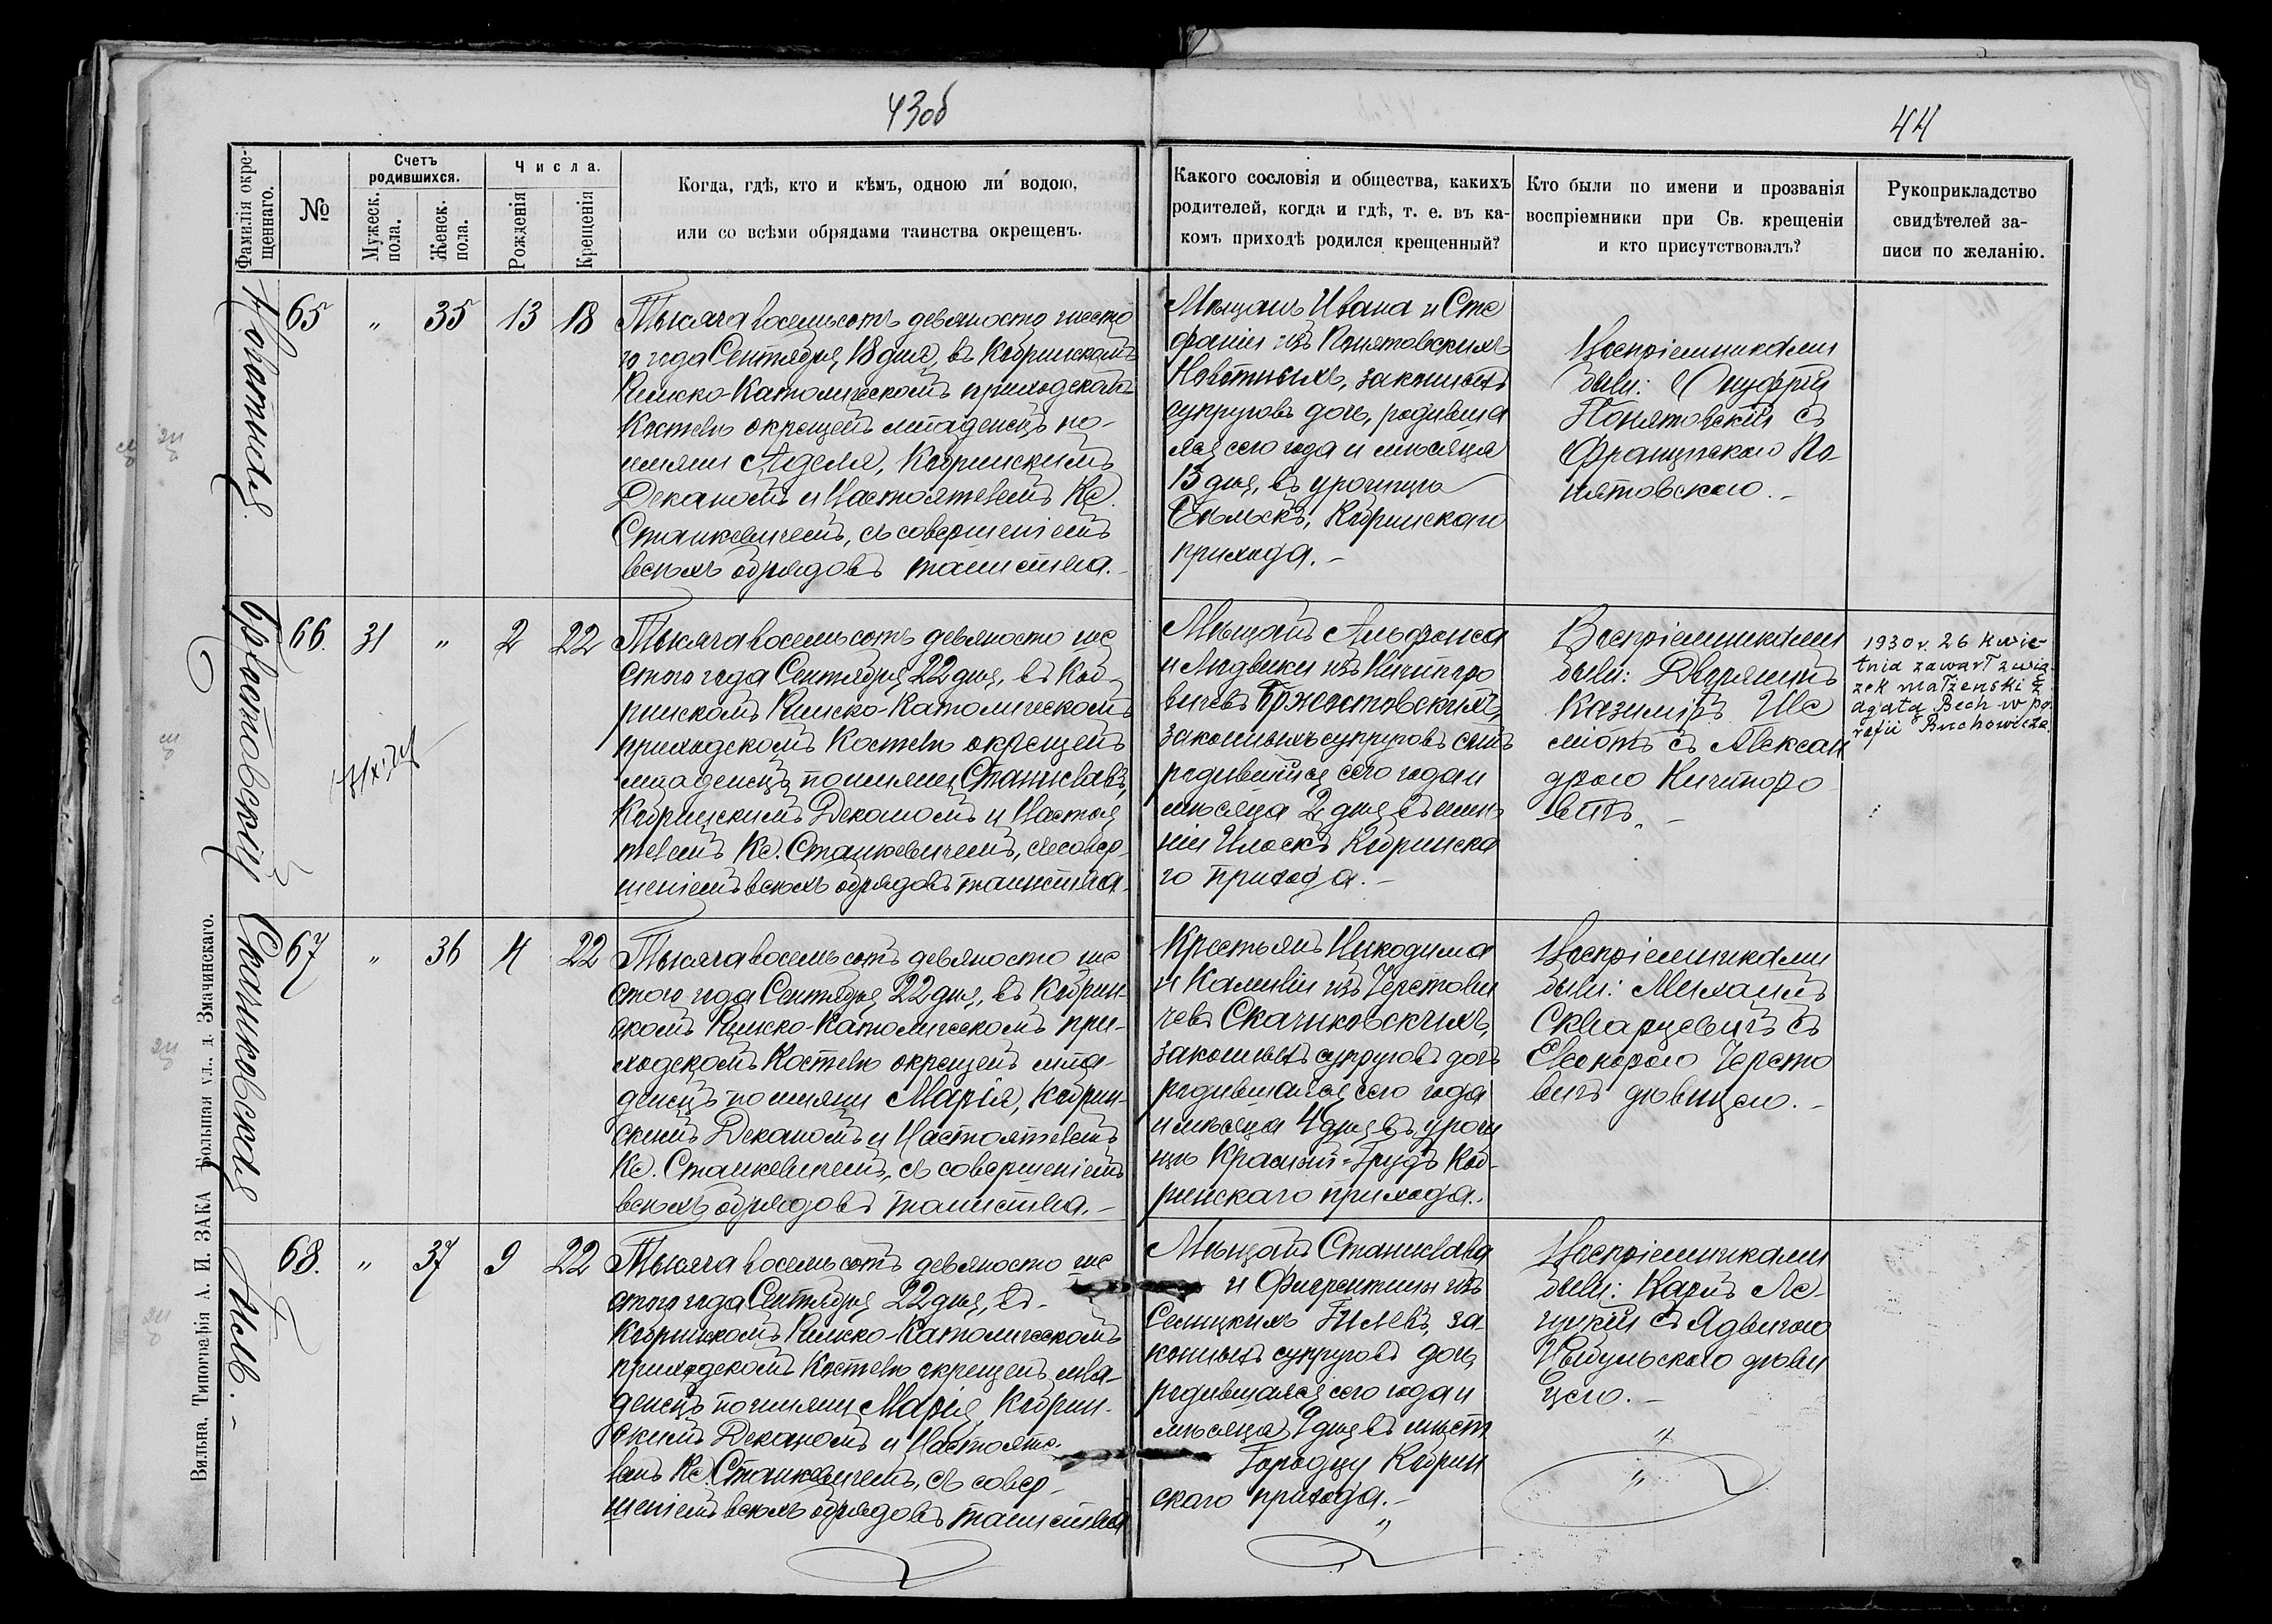 43об
44
Фамилія окре-
щеннаго.
№
Счетъ
родившихся.
Мужеск.
пола.
Женск.
пола.
Числа.
Рожденія
Крещенія
Когда, гдѣ, кто и кѣмъ, одною ли водою,
или со всѣми обрядами таинства окрещенъ.
Какого сословія и общества, какихъ
родителей, когда и гдѣ, т. е. въ ка-
комъ приходѣ родился крещенный?
Кто были по имени и прозванія
воспріемники при Св. крещеніи
и кто присутствовалъ?
Рукоприкладство
свидѣтелей за-
писи по желанію.
65 " 35 13 18
Тысяча восемьсотъ девяносто шесто
го года Сентября 18 дня, въ Кобринскомъ
Римско-Католическомъ приходскомъ
Костелѣ окрещенъ младенецъ по-
имяни Аделя, Кобринскимъ
Деканомъ и Настоятелемъ Кс.
Станкевичемъ, съ совершеніемъ
всѣхъ обрядовъ таинства.-
Мѣщанъ Ивана и Сте
фаніи изъ Понятовскихъ
законныхъ
супруговъ дочь, родивша
яся сего года и мѣсяца
13 дня, въ урочищѣ
Кобринскаго
прихода.-
Воспріемниками
были: Онуфрій
Понятовскій съ
Францишкою По-
нятовскою.-
Бржостовскій
66. 31 " 2 22
Тысяча восемьсотъ девяносто ше
стого года Сентября 22 дня, въ Коб-
ринскомъ Римско-Католическомъ
приходскомъ Костелѣ окрещенъ
младенецъ по имяни Станиславъ,
Кобринскимъ Деканомъ и Настоя
телемъ Кс. Станкевичемъ, съ совер-
шеніемъ всѣхъ обрядовъ таинства.
Мѣщанъ Альфонса
и Людвики изъ Кичипоро
вичевъ Бржостовскихъ,
законныхъ супруговъ сынъ
родившійся сего года и
мѣсяца 2 дня въ имѣ
ніи Илоскъ Кобринска
го прихода.-
Воспріемниками
были: Дворянинъ
Казиміръ
съ Алексан
дрою
1930 r. 26 kwie-
tnia zawarł zwią
zek małżenski z
agatą Bech w pa
rafii Buchowicze
Скачковская
67 " 36 4 22
Тысяча восемьсотъ девяносто ше
стого года Сентября 22 дня, въ Кобрин-
скомъ Римско-Католическомъ при-
ходскомъ Костелѣ окрещенъ мла-
денецъ по имяни Марія, Кобрин-
скимъ Деканомъ и Настоятелемъ
Кс. Станкевичемъ, съ совершеніемъ
всѣхъ обрядовъ таинства.-
Крестьянъ Никодима
и Камиліи изъ Черстви
чевъ Скачковскихъ,
законныхъ супруговъ дочь
родившаяся сего года
и мѣсяца 4 дня въ урочи
щѣ Красный-Грудъ Коб-
ринскаго прихода.
Воспріемниками
были: Михаилъ
Скварцевичъ съ
Елеонорою Черсто
вичъ дѣвицею.-
Гиль.-
68. " 37 9 22
Тысяча восемьсотъ девяносто ше
стого года Сентября 22 дня, въ-
Кобринскомъ Римско-Католическомъ
приходскомъ Костелѣ окрещенъ мла-
денецъ по имяни Марія, Кобрин-
скимъ Деканомъ и Настояте-
лемъ Кс. Станкевичемъ, съ совер-
шеніемъ всѣхъ обрядовъ таинства
Мѣщанъ Станислава
и изъ
Селицкихъ Гилевъ, за-
конныхъ супруговъ дочь,
родившаяся сего года и
мѣсяца 9 дня въ мѣст
Городцу Кобрин
скаго прихода.-
Воспріемниками
были: Карлъ
съ Ядвигою
дѣви
цею.-
Вильна, Типографія А. И. ЗАКА Большая ул., д. Змачинскаго.